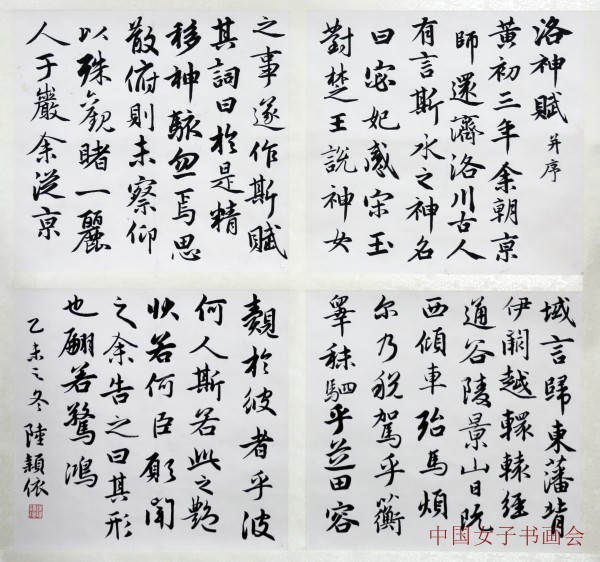 洛神賦 并序
黃初三年余朝京
師還濟洛川古人
有言斯水之神名
曰宓妃感宋玉
對楚王說神女
之事遂作斯賦
其詞曰於是精
移神駭忽焉思
散俯則未察仰
以殊觀睹一麗
人于巖余從京
域言歸東藩背
伊闕越轘轅經
通谷陵景山日既
西傾車殆馬煩
尔乃稅駕乎蘅
皋秣駟乎芝田容
覿於彼者乎彼
何人斯若此之艷
狀若何臣願聞
之余告之曰其形
也翩若驚鴻
乙未之冬 陸穎依
中国女子书画会